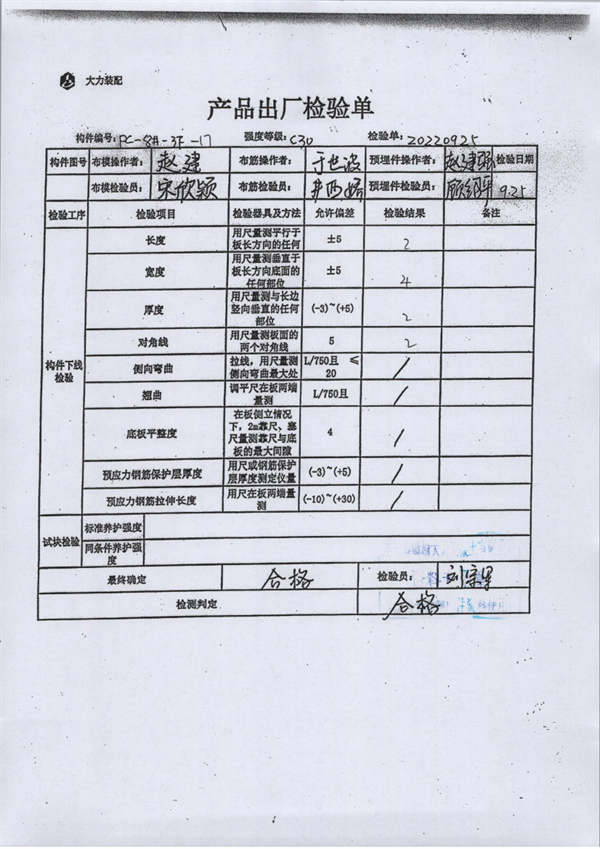 大力装配
产品出厂检验单
构件编号: PC-8#-3F-17 强度等级: C30 检验单: 20220925
构件图号 布模操作者: 赵建 布筋操作者: 于世波 预埋件操作者: 赵建 检验日期
布模检验员: 宋欣颖 布筋检验员: 预埋件检验员: 9.25
检验工序 检验项目 检验器具及方法 允许偏差 检验结果 备注
构件下线检验
长度 用尺量测平行于板长方向的任何 ±5 2
宽度 用尺量测垂直于板长方向底面的任何部位 ±5 4
厚度 用尺量测与长边竖向垂直的任何部位 (-3)~(+5) 2
对角线 用尺量测板面的两个对角线 5 2
侧向弯曲 拉线，用尺量测侧向弯曲最大处 L/750且 ≤20 /
翘曲 调平尺在板两端量测 L/750且 /
底板平整度 在板侧立情况下，2m靠尺、塞尺量测靠尺与底板的最大间隙 4 /
预应力钢筋保护层厚度 用尺或钢筋保护层厚度测定仪量 (-3)~(+5) /
预应力钢筋拉伸长度 用尺在板两端量测 (-10)~(+30) /
试块检验 标准养护强度
同条件养护强度
最终确定 合格 检验员:
检测判定 合格